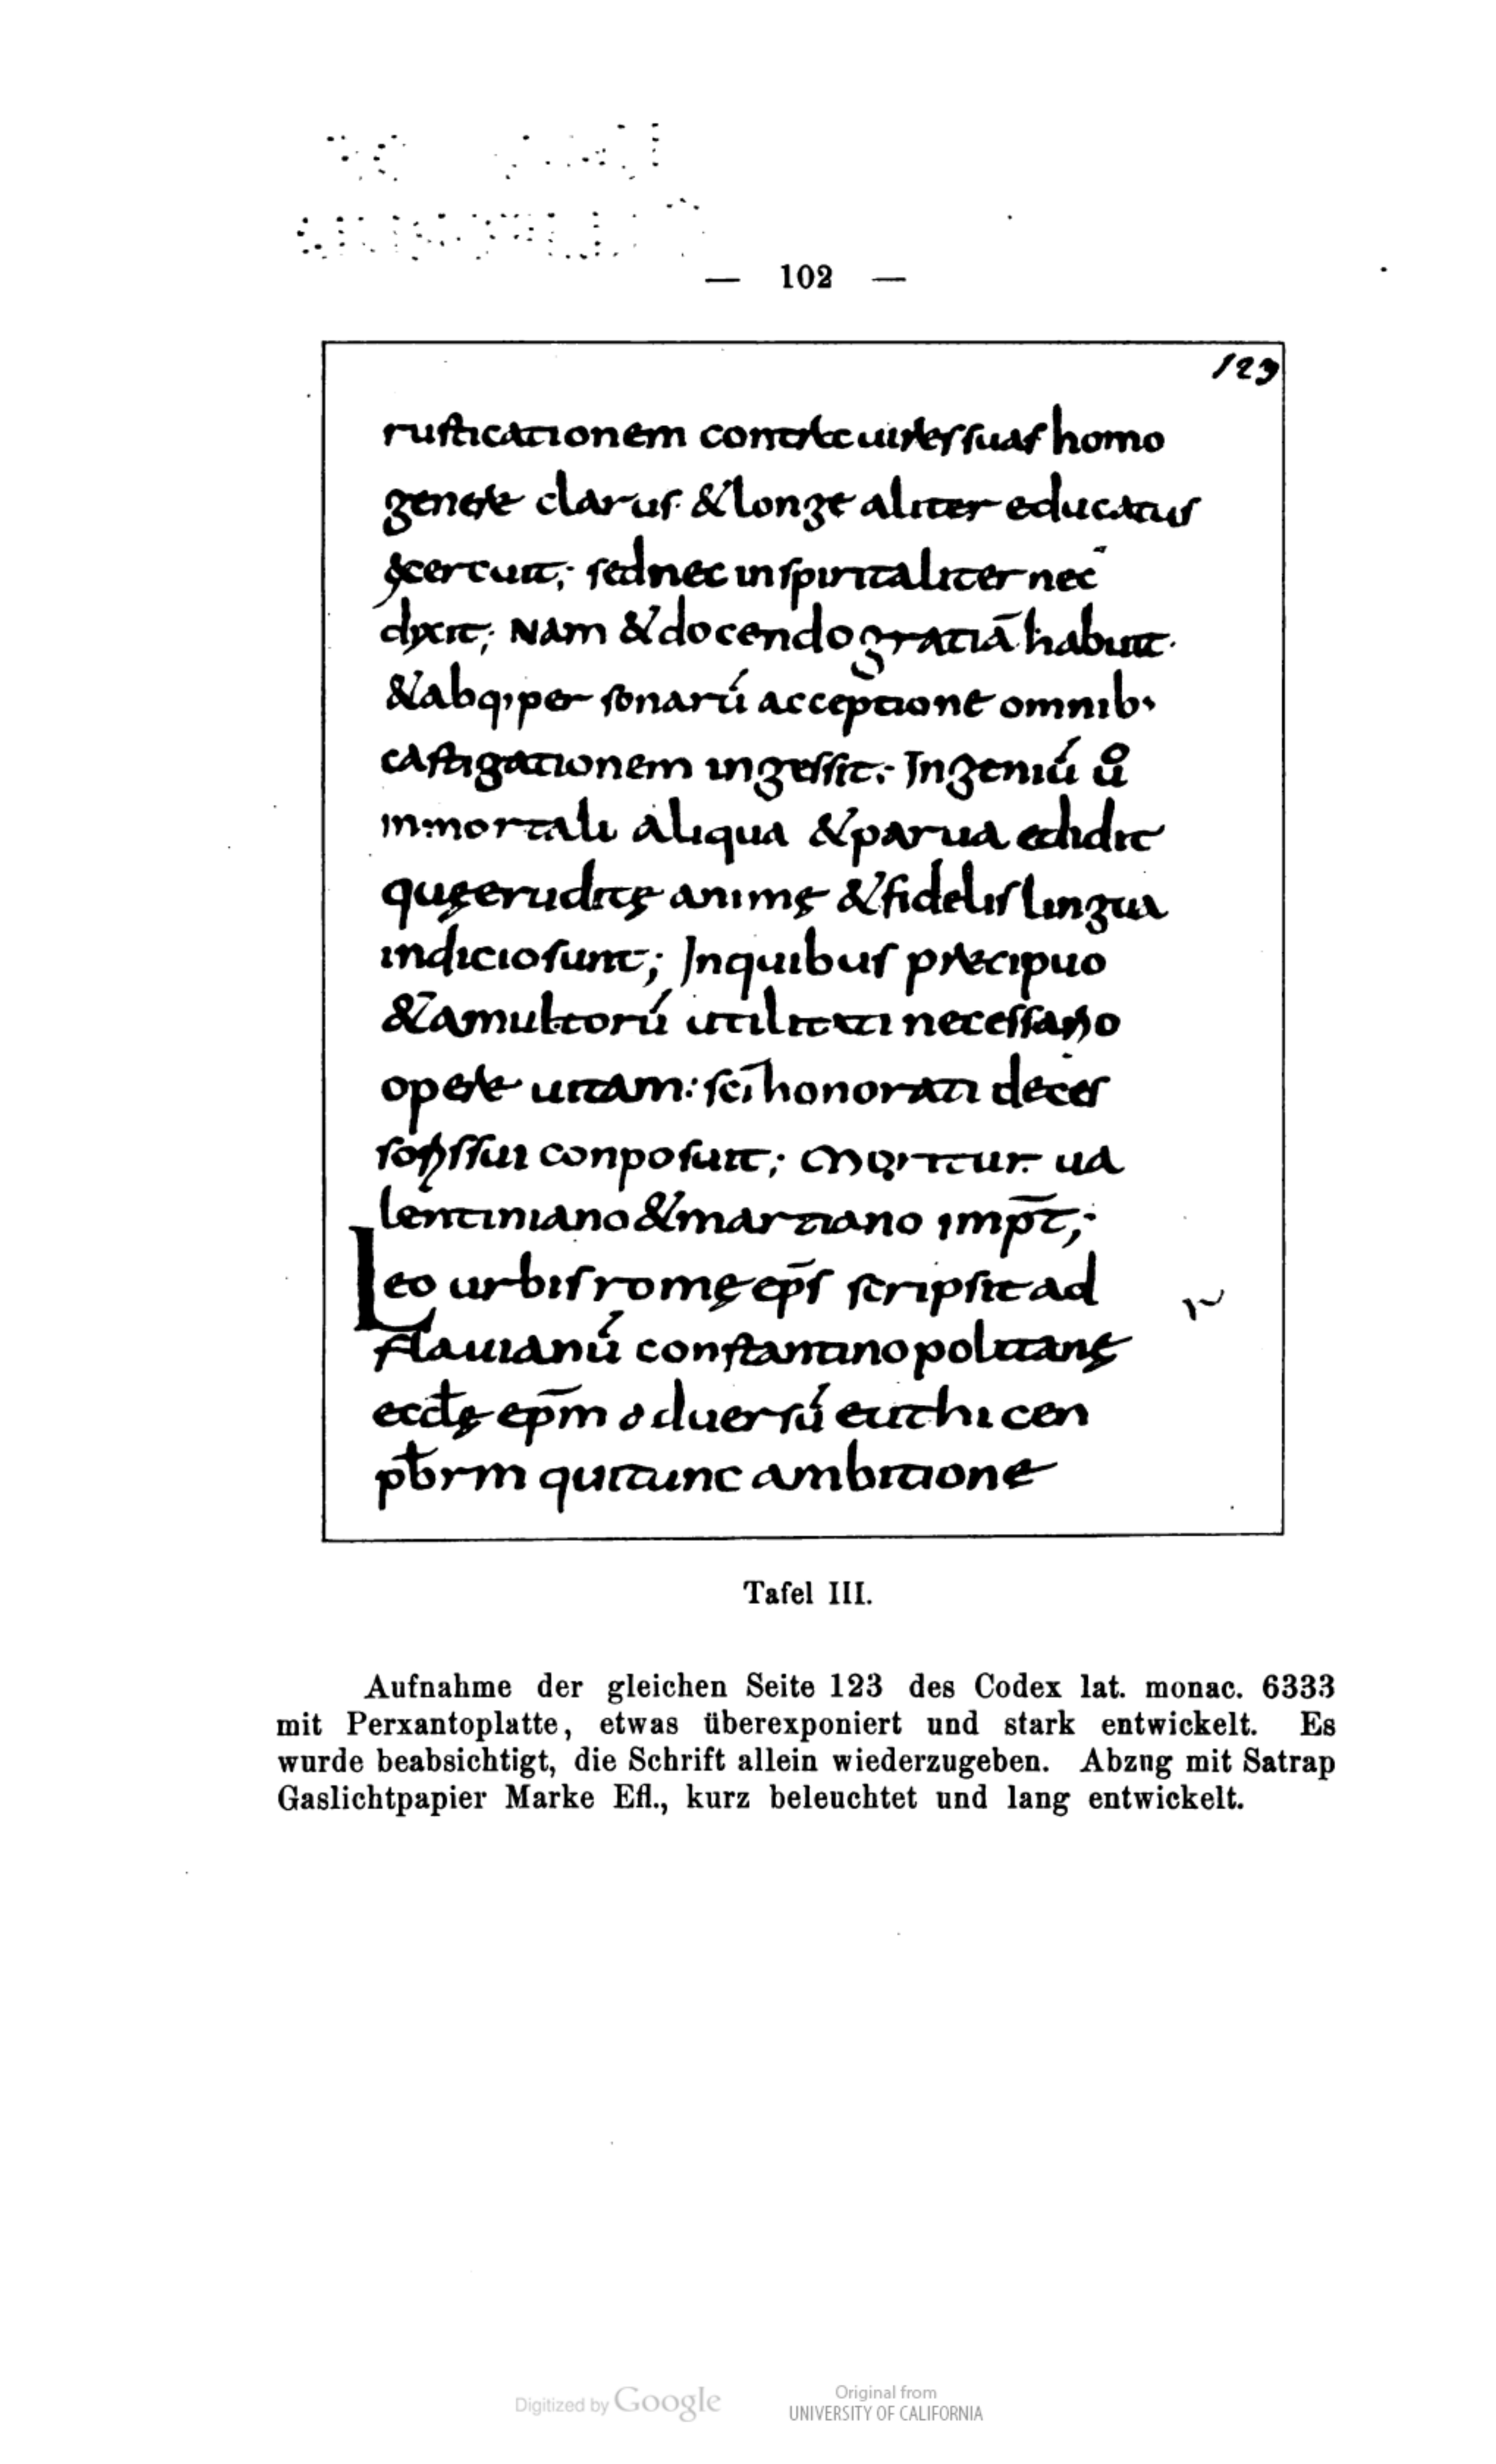 — 102 —
123
rusticationem contra uires suas homo
genere clarus & longe aliter educatus
exercuit; sed nec inspiritaliter nec
dixit; Nam & docendo gratiā habuit.
& absq; personarú acceptione omnib;
castigationem ingessit; Ingeniú ů
inmortali aliqua & parua edidit
quę eruditę animę & fidelis linguę
indicio sunt; In quibus precipuo
& amultorú utilitati necessario
opere uitam: sc̄i honorati deces
soris sui conposuit; Moritur ua
lentiniano & martiano imp̄t;
Leo urbis romę ep̄s scripsit ad
flauianú constantinopolitanę
eccłę ep̄m aduersú euthicen
pb̄rm qui tunc ambitione
Tafel III.
Aufnahme der gleichen Seite 123 des Codex lat. monac. 6333
mit Perxantoplatte, etwas überexponiert und stark entwickelt. Es
wurde beabsichtigt, die Schrift allein wiederzugeben. Abzug mit Satrap
Gaslichtpapier Marke Efl., kurz beleuchtet und lang entwickelt.
Digitized by Google
Original from
UNIVERSITY OF CALIFORNIA